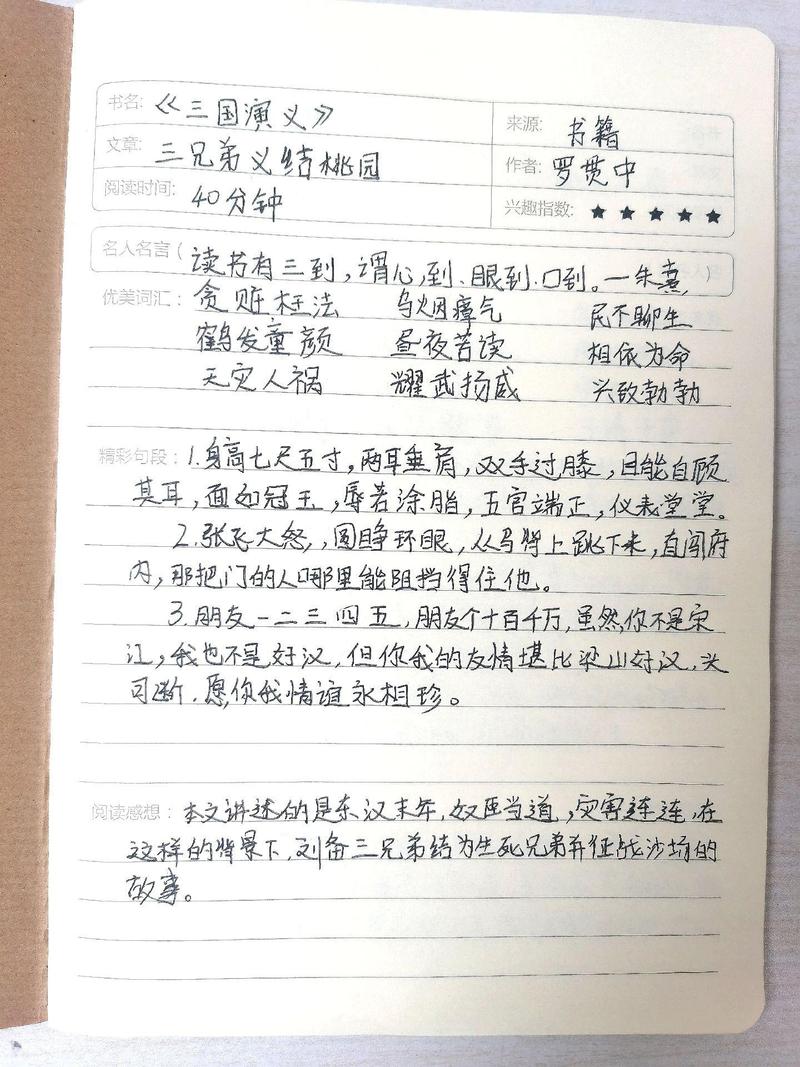 书名: 《三国演义》 来源: 书籍
文章: 三兄弟义结桃园 作者: 罗贯中
阅读时间: 40分钟 兴趣指数: ★★★★★
名人名言(读书有三到,谓心到、眼到、口到。—朱熹)
优美词汇: 贪赃枉法 乌烟瘴气 民不聊生
鹤发童颜 昼夜苦读 相依为命
天灾人祸 耀武扬威 兴致勃勃
精彩句段: 1.身高七尺五寸,两耳垂肩,双手过膝,目能自顾
其耳,面如冠玉,唇若涂脂,五官端正,仪表堂堂。
2.张飞大怒,圆睁环眼,从马背上跳下来,直闯府
内,那把门的人哪里能阻挡得住他。
3.朋友一二三四五,朋友个十百千万,虽然你不是宋
江,我也不是好汉,但你我的友情堪比梁山好汉,头
可断,愿你我情谊永相珍。
阅读感想: 本文讲述的是东汉末年,奴匪当道,灾害连连,在
这样的背景下,刘备三兄弟结为生死兄弟并征战沙场的
故事。